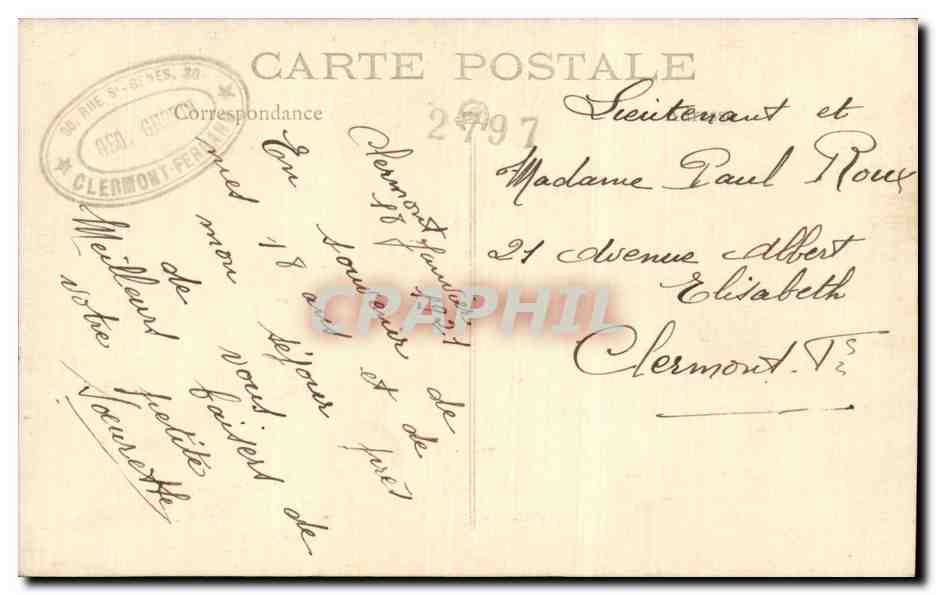 CARTE POSTALE
Correspondance
30, RUE St-GENES, 30
CLERMONT-FERRAND
2797
Clermont
18 Janvier 1921
En souvenir de
mes 18 ans et de
mon séjour près
de vous
Meilleurs baisers de
votre petite
Soeurette
Lieutenant et
Madame Paul Roux
21 Avenue Albert
Elisabeth
Clermont-Fd
CRAPHIL